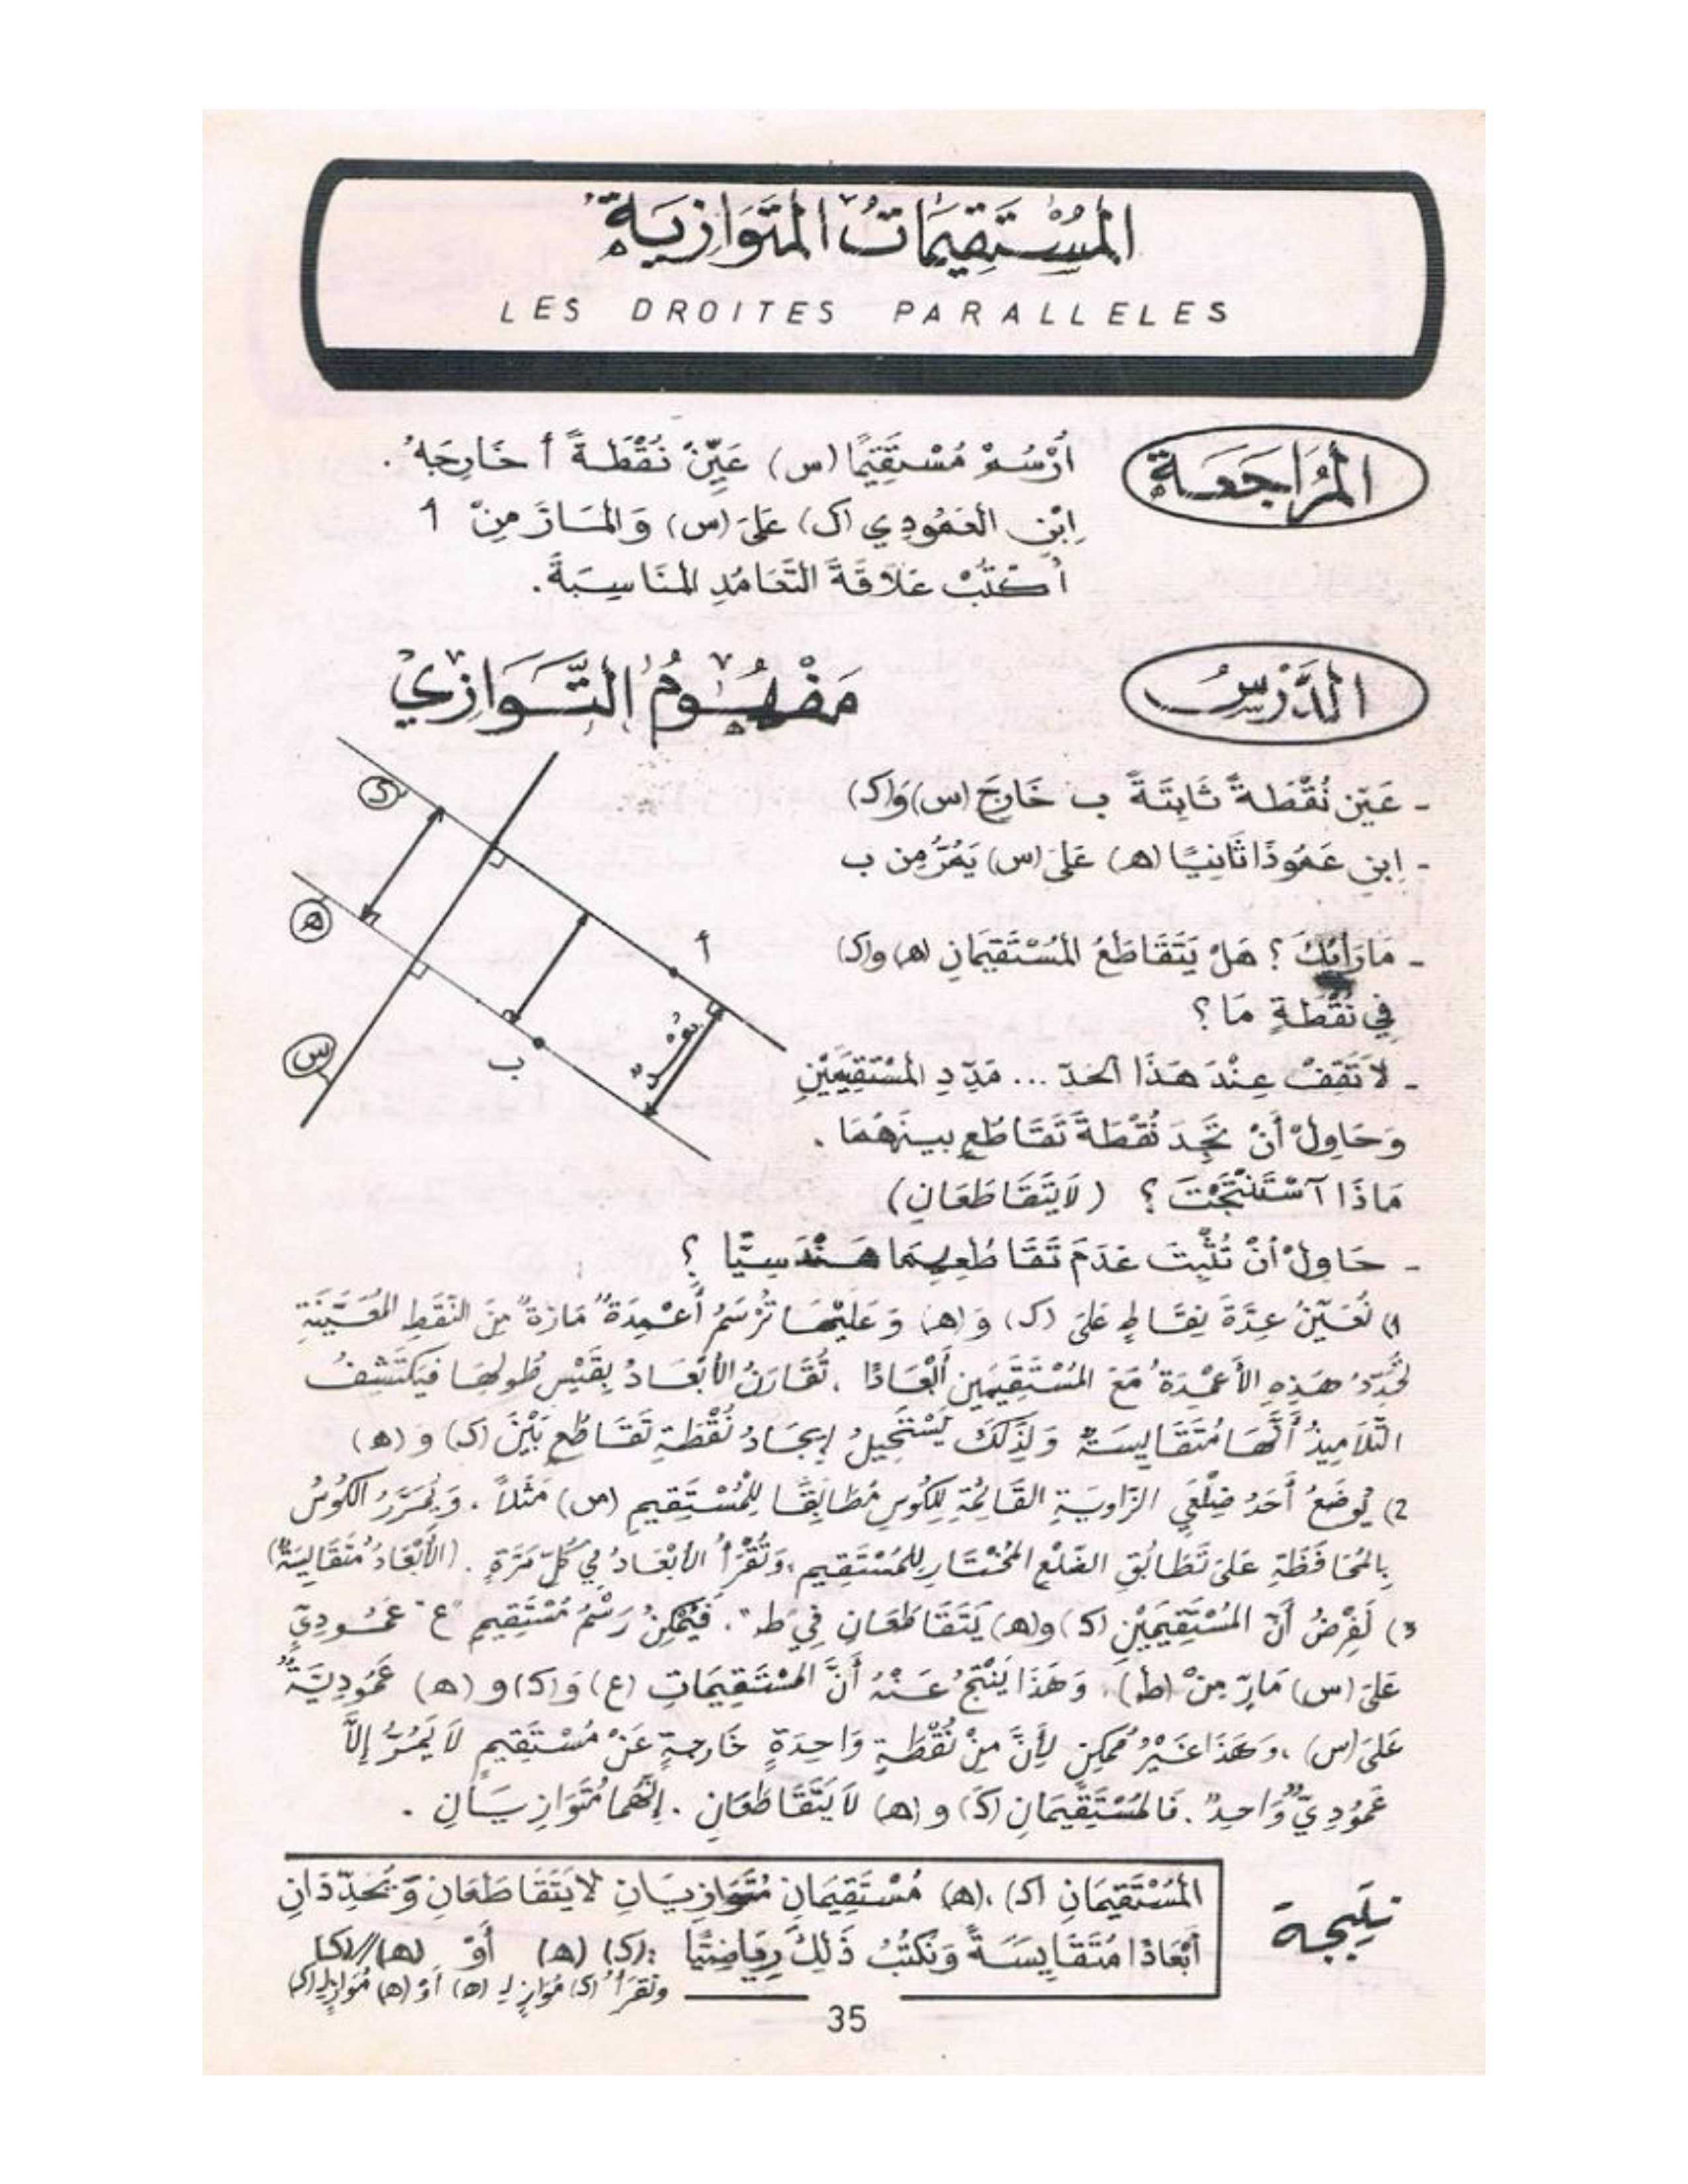 المُسْتَقِيمَاتُ المُتَوَازِيَةُ
LES DROITES PARALLELES
المُرَاجَعَة
أُرْسُمْ مُسْتَقِيمًا (س) عَيِّنْ نُقْطَةً أ خَارِجَهُ.
اِبْنِ العَمُودِي (ك) عَلَى (س) وَالمَارَّ مِنْ أ
أُكْتُبْ عَلاَقَةَ التَّعَامُدِ المُنَاسِبَةَ.
الدَّرْسُ
مَفْهُومُ التَّوَازِي
- عَيِّن نُقْطَةً ثَابِتَةً ب خَارِجَ (س) وَ(ك)
- اِبنِ عَمُودًا ثَانِيًا (ھ) عَلَى (س) يَمُرُّ مِن ب
- مَا رَأْيُكَ ؟ هَلْ يَتَقَاطَعُ المُسْتَقِيمَانِ (ھ) و(ك)
فِي نُقْطَةٍ مَا ؟
- لاَ تَقِفْ عِنْدَ هَذَا الحَدّ ... مَدِّدِ المُسْتَقِيمَيْنِ
وَحَاوِلْ أَنْ تَجِدَ نُقْطَةَ تَقَاطُعٍ بينَهُمَا .
مَاذَا آسْتَنْتَجْتَ ؟ (لاَ يَتَقَاطَعَانِ)
- حَاوِلْ أَنْ تُثْبِتَ عَدَمَ تَقَاطُعِهِمَا هَنْدَسِيًّا ؟
1) نُعَيِّنُ عِدَّةَ نِقَاطٍ عَلَى (ك) وَ (ھ) وَعَلَيْهَا تُرْسَمُ أَعْمِدَةٌ مَارَّةٌ مِنَ النُّقَطِ المُعَيَّنَةِ
تُحَدِّدُ هَذِهِ الأَعْمِدَةُ مَعَ المُسْتَقِيمَيْنِ أَبْعَادًا . تُقَارَنُ الأَبْعَادُ بِقَيْسِ طُولِهَا فَيَكْتَشِفُ
التَّلاَمِيذُ أَنَّهَا مُتَقَايِسَةٌ وَلِذَلِكَ يَسْتَحِيلُ إِيجَادُ نُقْطَةِ تَقَاطُعٍ بَيْنَ (ك) و (ھ)
2) يُوضَعُ أَحَدُ ضِلْعَيِ الزَّاوِيَةِ القَائِمَةِ لِلكُوسِ مُطَابِقًا لِلمُسْتَقِيمِ (س) مَثَلاً . وَيُمَرَّرُ الكُوسُ
بِالمُحَافَظَةِ عَلَى تَطَابُقِ الضِّلْعِ المُخْتَارِ لِلمُسْتَقِيمِ ، وَتُقْرَأُ الأَبْعَادُ فِي كُلِّ مَرَّةٍ . (الأَبْعَادُ مُتَقَايِسَةٌ)
3) لَفْرِضُ أَنَّ المُسْتَقِيمَيْنِ (ك) و(ھ) يَتَقَاطَعَانِ فِي "ط" . فَيُمْكِنُ رَسْمُ مُسْتَقِيمٍ "ع" عَمُودِيٍّ
عَلَى (س) مَارٍّ مِنْ (ط) . وَهَذَا يَنْتُجُ عَنْهُ أَنَّ المُسْتَقِيمَاتِ (ع) وَ(ك) و (ھ) عَمُودِيَّةٌ
عَلَى (س) ، وَهَذَا غَيْرُ مُمْكِنٍ لِأَنَّ مِنْ نُقْطَةٍ وَاحِدَةٍ خَارِجَةٍ عَنْ مُسْتَقِيمٍ لاَ يَمُرُّ إِلاَّ
عَمُودِيٌّ وَاحِدٌ . فَالمُسْتَقِيمَانِ (ك) و (ھ) لاَ يَتَقَاطَعَانِ . إِنَّهُمَا مُتَوَازِيَانِ .
ك
ھ
س
أ
ب
بُعْد
نتِيجة
المُسْتَقِيمَانِ (ك) ، (ھ) مُسْتَقِيمَانِ مُتَوَازِيَانِ لاَ يَتَقَاطَعَانِ وَيُحَدِّدَانِ
أَبْعَادًا مُتَقَايِسَةً وَنَكْتُبُ ذَلِكَ رِيَاضِيًّا : (ك) (ھ) أَوْ (ھ)//(ك)
ونَقْرَأُ (ك) مُوَازٍ لِـ (ھ) أَوْ (ھ) مُوَازٍ لِـ(ك)
35